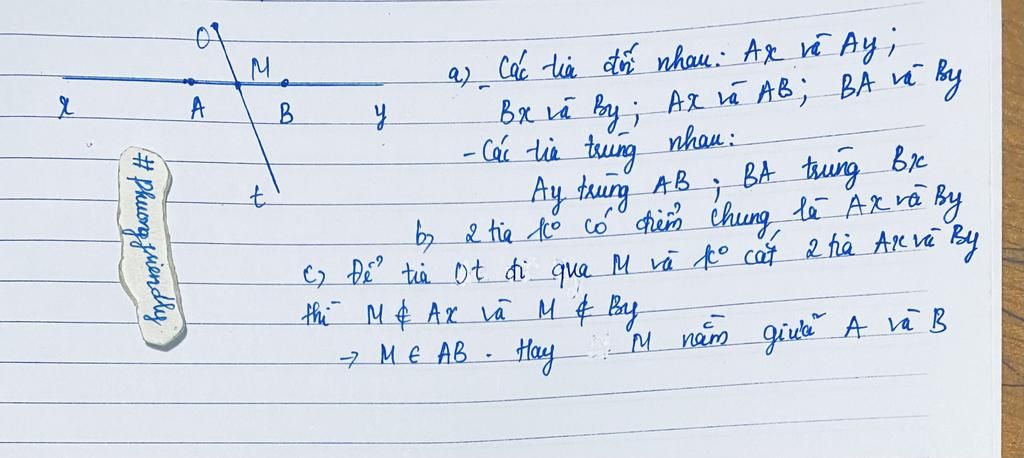 O
M
x A B y
t
#phuongfriendly
a) - Các tia đối nhau: Ax và Ay;
Bx và By; Ax và AB; BA và By
- Các tia trùng nhau:
Ay trùng AB; BA trùng Bx
b, 2 tia ko có điểm chung là Ax và By
c, Để tia Ot đi qua M và ko cắt 2 tia Ax và By
thì M ∉ Ax và M ∉ By
→ M ∈ AB. Hay M nằm giữa A và B